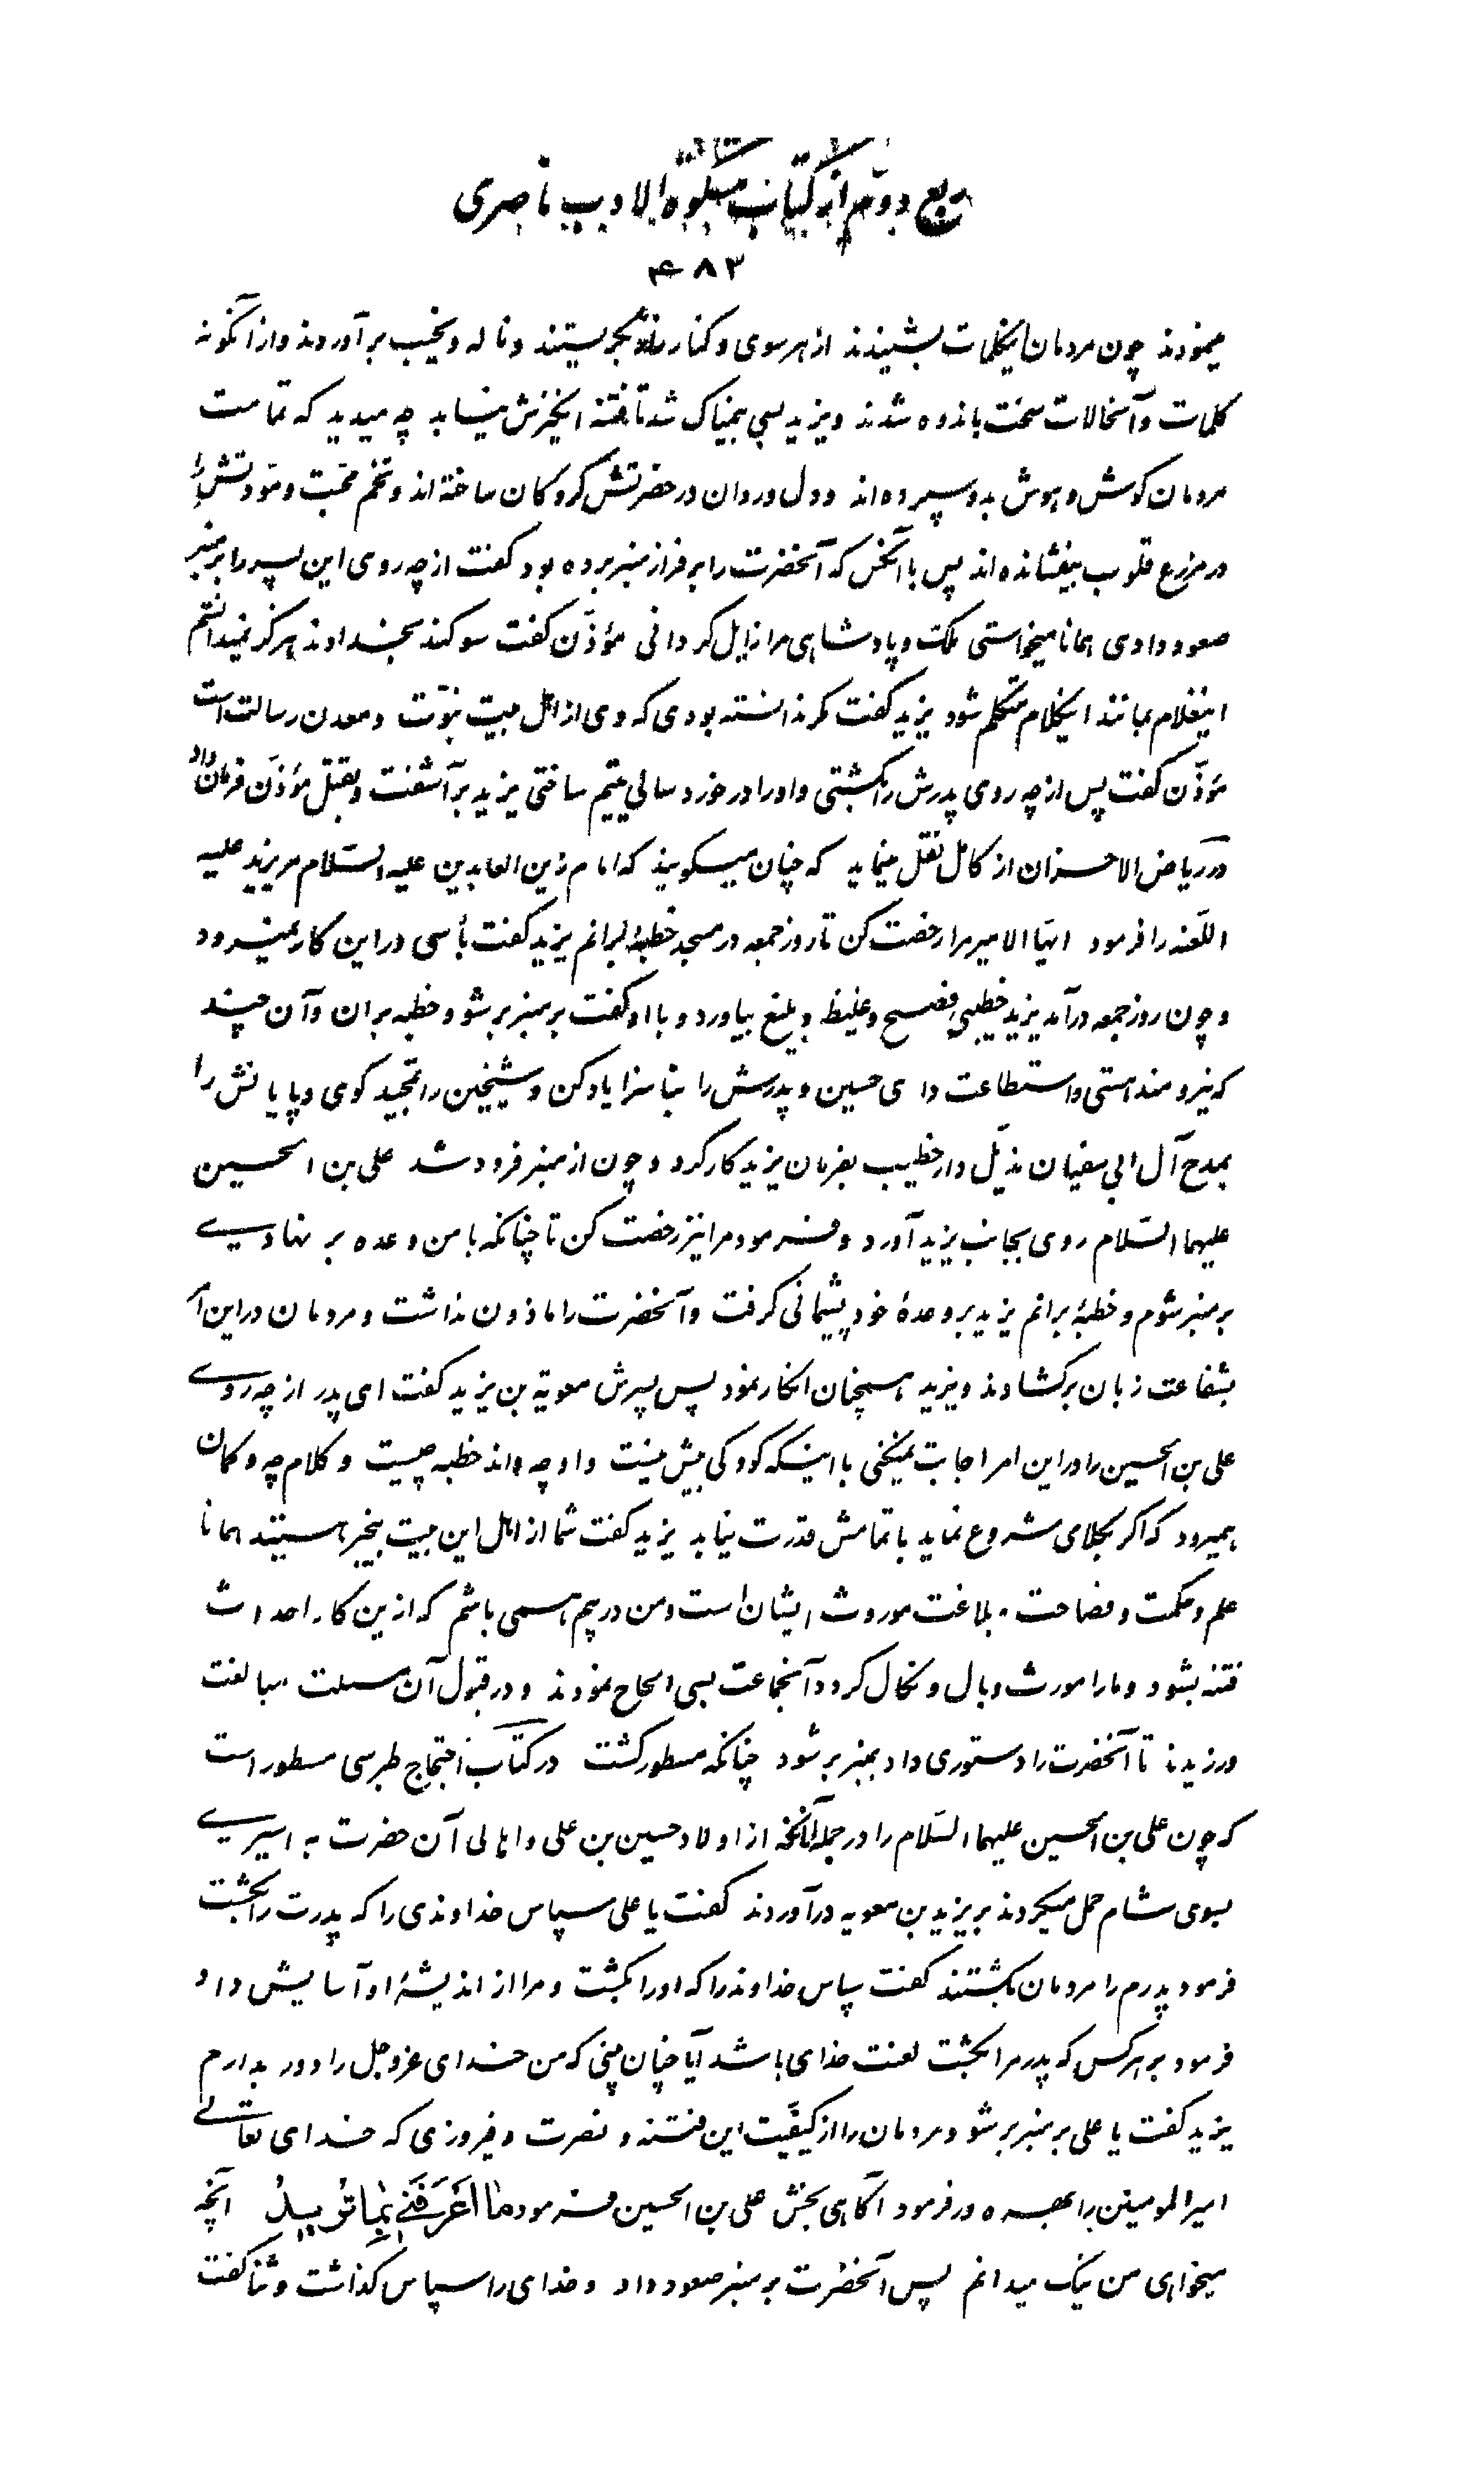 ربع دوم از کتاب مشکوة الادب ناصری
۴۸۳
مینمودند چون مردمان اینکلمات بشنیدند از هر سوی و کنار بگریستند و ناله و نحیب برآوردند و از آنگونه
کلمات و آنحالات سخت باندوه شدند و یزید بسی بیمناک شد تا فتنه انگیزش نیابد چه میدید که تمامت
مردمان کوش و هوش بدو سپرده اند و دل و روان در حضرتش کروکان ساخته اند و تخم محبت و مودتش را
در مزرع قلوب بیفشانده اند پس با آنکس که آنحضرت را بر فراز منبر برده بود کفت از چه روی این پسر را بر منبر
صعود دادی همانا میخواستی ملک و پادشاهی مرا زایل کردانی مؤذّن کفت سوکند بخداوند هرکز نمیدانستم
اینغلام بمانند اینکلام متکلم شود یزید کفت مکر ندانسته بودی که وی از اهل بیت نبوّت و معدن رسالت است
مؤذّن کفت پس از چه روی پدرش را بکشتی و او را در خورد سالی یتیم ساختی یزید برآشفت و بقتل مؤذّن فرمان داد
در ریاض الاحزان از کامل نقل مینماید که چنان میکویند که امام زین العابدین علیه السّلام مر یزید علیه
اللّعنه را فرمود ایّها الامیر مرا رخصت کن تا روز جمعه در مسجد خطبهٔ برانم یزید کفت بأسی در این کار نمیرود
و چون روز جمعه درآمد یزید خطیبی فصیح و غلیظ و بلیغ بیاورد و با او کفت بر منبر بر شو و خطبه بران و آن چند
که نیرومند هستی و استطاعت داری حسین و پدرش را بناسزا یاد کن و شیخین را تمجید کوی و پایانش را
بمدح آل ابی سفیان مذیّل دار خطیب بفرمان یزید کار کرد و چون از منبر فرود شد علی بن الحسین
علیهما السّلام روی بجانب یزید آورد و فرمود مرا نیز رخصت کن تا چنانکه با من وعده بر نهادی
بر منبر شوم و خطبهٔ برانم یزید بر وعدهٔ خود پشیمانی کرفت و آنحضرت را ماذون نداشت و مردمان در این امر
بشفاعت زبان برکشادند و یزید همچنان انکار نمود پس پسرش معویة بن یزید کفت ای پدر از چه روی
علی بن الحسین را در این امر اجابت نمیکنی با اینکه کودکی بیش نیست و او چه داند خطبه چیست و کلام چه و کمان
همیرود که اکر بکلامی شروع نماید باتمامش قدرت نیابد یزید کفت شما از اهل این بیت بیخبر هستید همانا
علم و حکمت و فصاحت و بلاغت موروث ایشان است و من در بیم همی باشم که از ین کار احداث
فتنه بشود و ما را مورث وبال و نکال کردد آنجماعت بسی الحاح نمودند و در قبول آن مسئلت مبالغت
ورزیدند تا آنحضرت را دستوری داد بمنبر بر شود چنانکه مسطور کشت در کتاب احتجاج طبرسی مسطور است
که چون علی بن الحسین علیهما السّلام را در جمله آنانکه از اولاد حسین بن علی و اهالی آن حضرت به اسیری
بسوی شام حمل میکردند بر یزید بن معویه درآوردند کفت یا علی سپاس خداوندی را که پدرت را بکشت
فرمود پدرم را مردمان بکشتند کفت سپاس خداوند را که او را بکشت و مرا از اندیشهٔ او آسایش داد
فرمود بر هرکس که پدر مرا بکشت لعنت خدای باشد آیا چنان بینی که من خدای عزوجل را دور بدارم
یزید کفت یا علی بر منبر بر شو و مردمان را از کیفیّت این فتنه و نصرت و فیروزی که خدای تعالی
امیر المومنین را بهره ور فرمود آکاهی بخش علی بن الحسین فرمود ما اَعْرَفَنی بِما تُریدُ آنچه
میخواهی من نیک میدانم پس آنحضرت بر منبر صعود داد و خدای را سپاس کذاشت و ثنا کفت